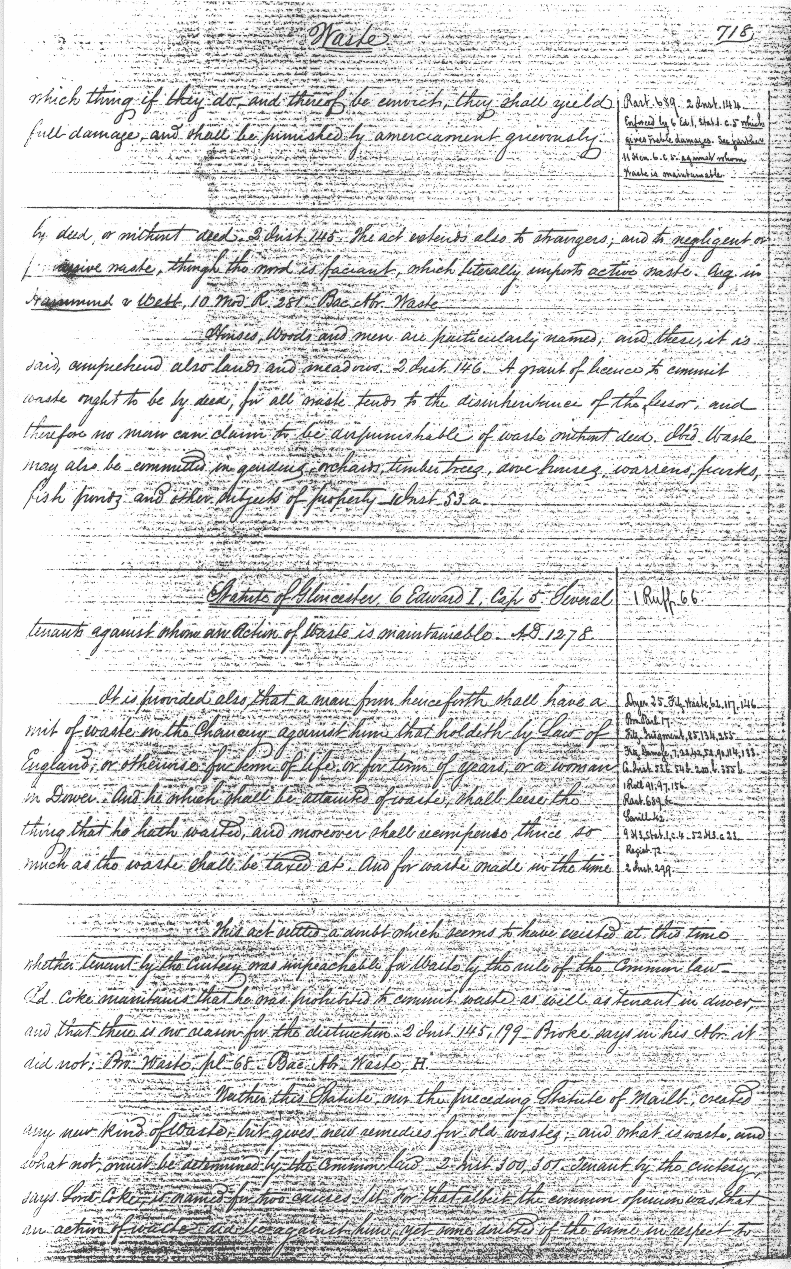 Waste
718
which thing if they do, and thereof be convict, they shall yield
full damage, and shall be punished by amerciament grievously
Rast. 689. 2 Inst. 144
Enforced by 6 Ed. 1, Stat. 1. c. 5 which
gives treble damages. See further
11 Hen. 6. c. 5. against whom
Waste is maintainable
by deed, or without deed. 2 Inst 145. The act extends also to strangers; and to negligent or
waste, though the word is faciant, which literally imports active waste. Arg. in
Hammond v West, 10 Mod. R. 281. Bac. Abr. Waste
Houses, Woods and men are particularly named; and these, it is
said, comprehend also lands and meadows. 2 Inst. 146. A grant of licence to commit
waste ought to be by deed, for all waste tends to the disinheritance of the lessor; and
therefore no man can claim to be dispunishable of waste without deed. Ibid. Waste
may also be committed in gardens, orchards, timber trees, dove houses, warrens, parks,
fish ponds and other subjects of property. 1 Inst. 53. a.
Statute of Glocester, 6 Edward I, Cap 5. Several
tenants against whom an Action of Waste is maintainable. AD. 1278
1 Ruff. 66.
It is provided also, that a man from henceforth shall have a
writ of waste in the Chancery against him that holdeth by Law of
England, or otherwise for term of life, or for term of years, or a woman
in Dower. And he which shall be attainted of waste, shall leese the
thing that he hath wasted, and moreover shall recompense thrice so
much as the waste shall be taxed at. And for waste made in the time
Dyer 25. Fitz. Waste, 62, 117, 146
Fitz. Judgment, 85, 134, 255.
Fitz. Damage, 7, 22, 42, 52, 91, 114, 133
Co. Inst. 53 b. 54 b. 200 b. 355 b
1 Roll 91, 97, 156.
Rast. 689, &c.
Savill 42.
9 H 3, Stat. 1, c. 4. 52 H 3. c 23.
Regist. 72.
2 Inst. 299.
This act settled a doubt which seems to have existed at this time
whether tenant by the Curtesy was impeachable for Waste by the rule of the Common law.
Ld. Coke maintains that he was prohibited to commit waste as well as tenant in dower,
and that there is no reason for the distinction. 2 Inst 145, 199. Broke says in his Abr. it
did not: Bro. Waste, pl. 68. Bac. Abr. Waste, H.
Neither this Statute, nor the preceding Statute of Marlb, created
any new kind of Waste, but gives new remedies for old wastes; and what is waste, and
what not, must be determined by the Common law. 2 Inst. 300, 301. Tenant by the curtesy,
says Lord Coke, is named for two causes. 1st. For that albeit the common opinion was that
an action of waste did lie against him, yet some doubted of the same in respect to